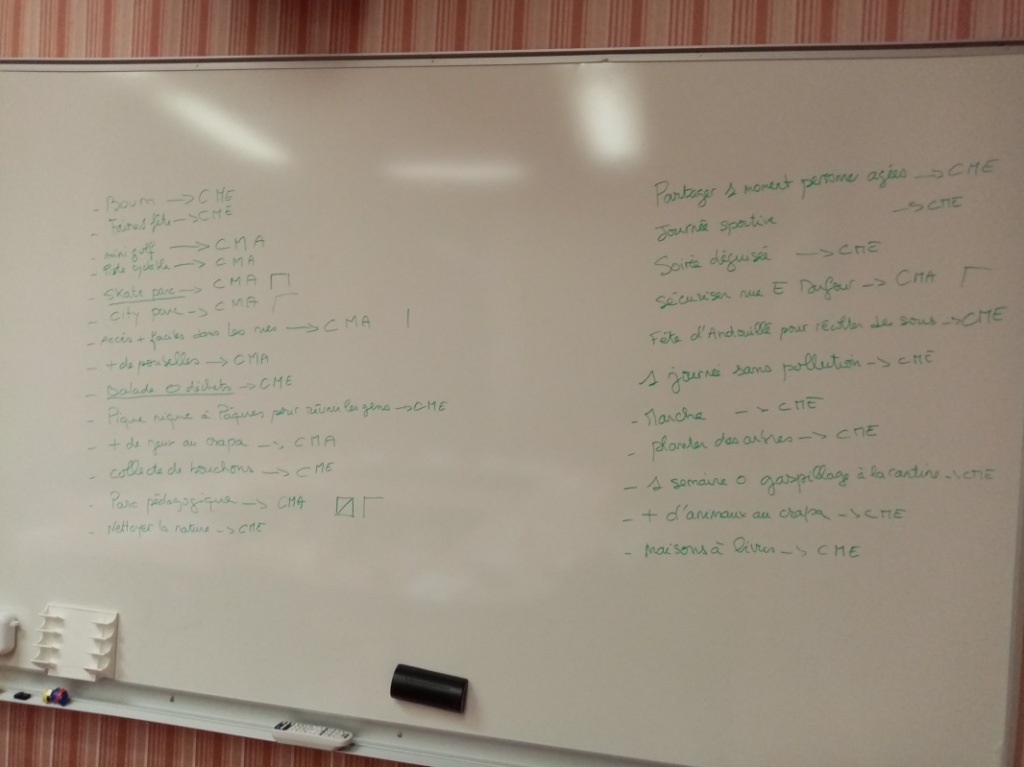 - Boum -> CME
- Faire fête -> CME
- mini golf -> CMA
- Piste cyclable -> CMA
- Skate parc -> CMA
- City parc -> CMA
- Accès + faciles dans les rues -> CMA
- + de poubelles -> CMA
- Balade 0 déchets -> CME
- Pique nique à Pâques pour réunir les gens -> CME
- + de jeux au crapa -> CMA
- collecte de bouchons -> CME
- Parc pédagogique -> CMA
- Nettoyer la nature -> CME
Partager 1 moment personne agées -> CME
Journée sportive -> CME
Soirée déguisée -> CME
sécuriser rue E -> CMA
Fête d'Andouillé pour récolter des sous -> CME
1 journée sans pollution -> CME
- Marche -> CME
- planter des arbres -> CME
- 1 semaine 0 gaspillage à la cantine -> CME
- + d'animaux au crapa -> CME
- Maisons à livres -> CME